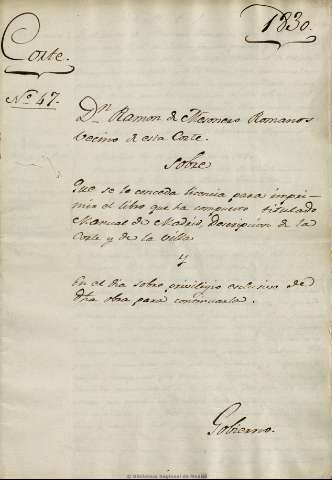 1830.
Corte.
Nº 47.
Dn. Ramon de Mesonero Romanos
vecino de esta Corte.
Sobre
Que se le conceda licencia para impri-
mir el libro que ha compuesto titulado
Manual de Madrid, descripcion de la
Corte y de la Villa
y
En el dia sobre privilegio exclusivo de
dha obra para continuarla.
Gobierno.
© Biblioteca Regional de Madrid